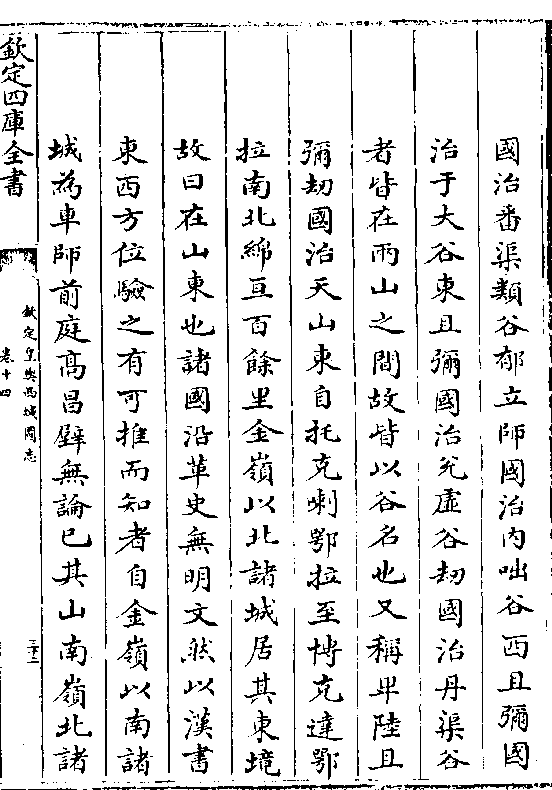 國治番渠類谷郁立師國治内咄谷西且彌國
治于大谷東且彌國治兊虚谷劫國治丹渠谷
者皆在兩山之間故皆以谷名也又稱毕陸且
彌劫國治天山東自托克喇鄂拉至博克達鄂
拉南北綿亘百餘里金嶺以北諸城居其東境
故曰在山東也諸國沿革史無明文然以漢書
東西方位驗之有可推而知者自金嶺以南諸
城為車師前庭髙昌壁無論已其山南嶺北諸
欽定四庫全書
欽定皇輿西域圖志
卷十四
三十二